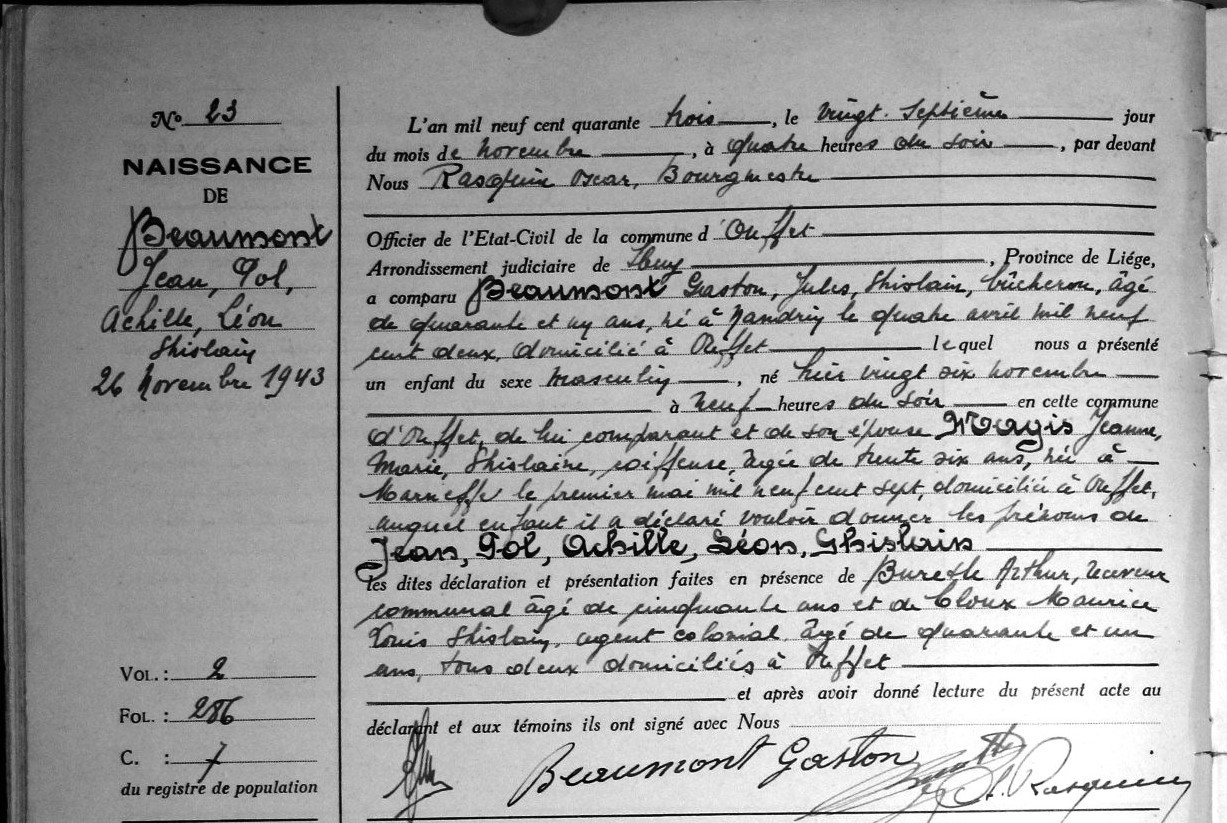 No 23
NAISSANCE
DE
Beaumont
Jean, Pol,
Achille, Léon
Ghislain
26 Novembre 1943
L'an mil neuf cent quarante trois, le vingt-septième jour
du mois de novembre, à quatre heures du soir, par devant
Nous Rasquin Oscar, Bourgmestre
Officier de l'Etat-Civil de la commune d'Ouffet
Arrondissement judiciaire de Huy, Province de Liége,
a comparu Beaumont Gaston, Jules, Ghislain, bûcheron, âgé
de quarante et un ans, né à Nandrin le quatre avril mil neuf
cent deux, domicilié à Ouffet lequel nous a présenté
un enfant du sexe masculin, né hier vingt six novembre
à neuf heures du soir en cette commune
d'Ouffet, de lui comparant et de son épouse Magis Jeanne,
Marie, Ghislaine, coiffeuse, âgée de trente six ans, née à
Marneffe le premier mai mil neuf cent sept, domiciliée à Ouffet,
auquel enfant il a déclaré vouloir donner les prénoms de
Jean, Pol, Achille, Léon, Ghislain
les dites déclaration et présentation faites en présence de Arthur, receveur
communal âgé de cinquante ans et de Cloux Maurice
Louis Ghislain, agent colonial âgé de quarante et un
ans, tous deux domiciliés à Ouffet
et après avoir donné lecture du présent acte au
déclarant et aux témoins ils ont signé avec Nous
Beaumont Gaston
O. Rasquin
VOL. : 2
FOL. : 286
C. : 7
du registre de population